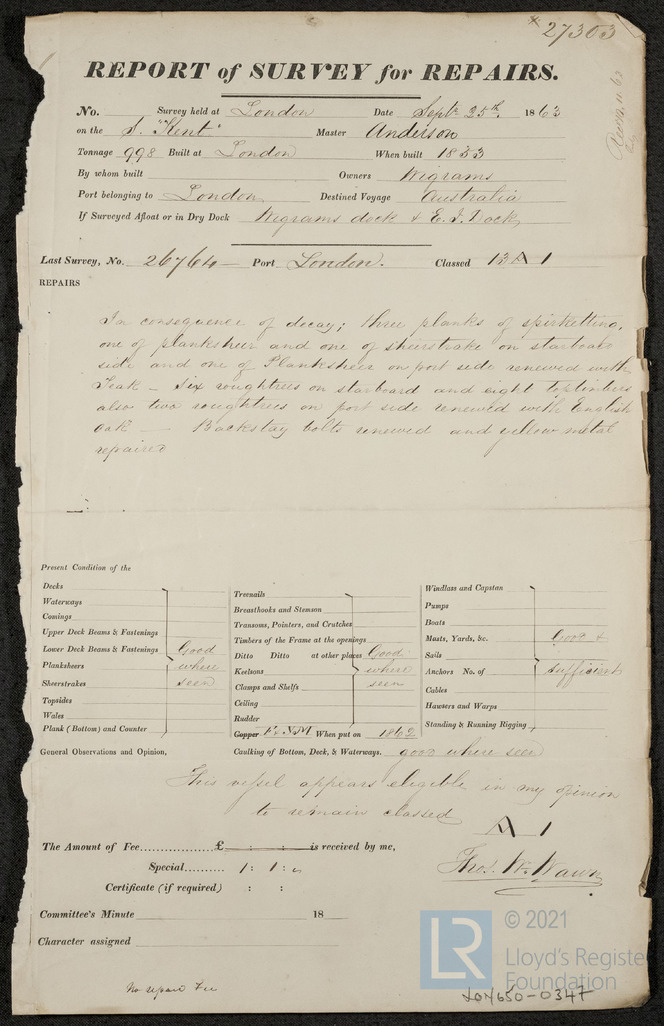 * 27303
REPORT of SURVEY for REPAIRS.
No. Survey held at London Date Sept. 25th. 1863
on the S. "Kent" Master Anderson
Tonnage 998 Built at London When built 1833
By whom built Owners Wigrams
Port belonging to London Destined Voyage Australia
If Surveyed Afloat or in Dry Dock Wigrams dock & E. I. Dock
Last Survey, No. 26764 Port London. Classed 13 A 1
REPAIRS
In consequence of decay; three planks of spirketting,
one of planksheer and one of sheerstrake on starboard
side and one of Planksheer on port side renewed with
Teak – Six roughtrees on starboard and eight toptimbers
also two roughtrees on port side renewed with English
Oak — Backstay bolts renewed and yellow metal
repaired
Present Condition of the
Decks
Waterways
Comings
Upper Deck Beams & Fastenings
Lower Deck Beams & Fastenings Good
Planksheers where
Sheerstrakes seen
Topsides
Wales
Plank (Bottom) and Counter
Treenails
Breasthooks and Stemson
Transoms, Pointers, and Crutches
Timbers of the Frame at the openings
Ditto Ditto at other places Good
Keelsons where
Clamps and Shelfs seen
Ceiling
Rudder
Copper F. YM When put on 1862
Windlass and Capstan
Pumps
Boats
Masts, Yards, &c. Good &
Sails
Anchors No. of Sufficient
Cables
Hawsers and Warps
Standing & Running Rigging
General Observations and Opinion, Caulking of Bottom, Deck, & Waterways. good where seen
This vessel appears eligible in my opinion
to remain classed
A 1
The Amount of Fee............... £ : : is received by me,
Special.......... 1 : 1 : "
Thos. W. Wawn
Certificate (if required) : :
Committee's Minute 18
Character assigned
No repair Fee
LR © 2021
Lloyd's Register
Foundation
LON650-0347